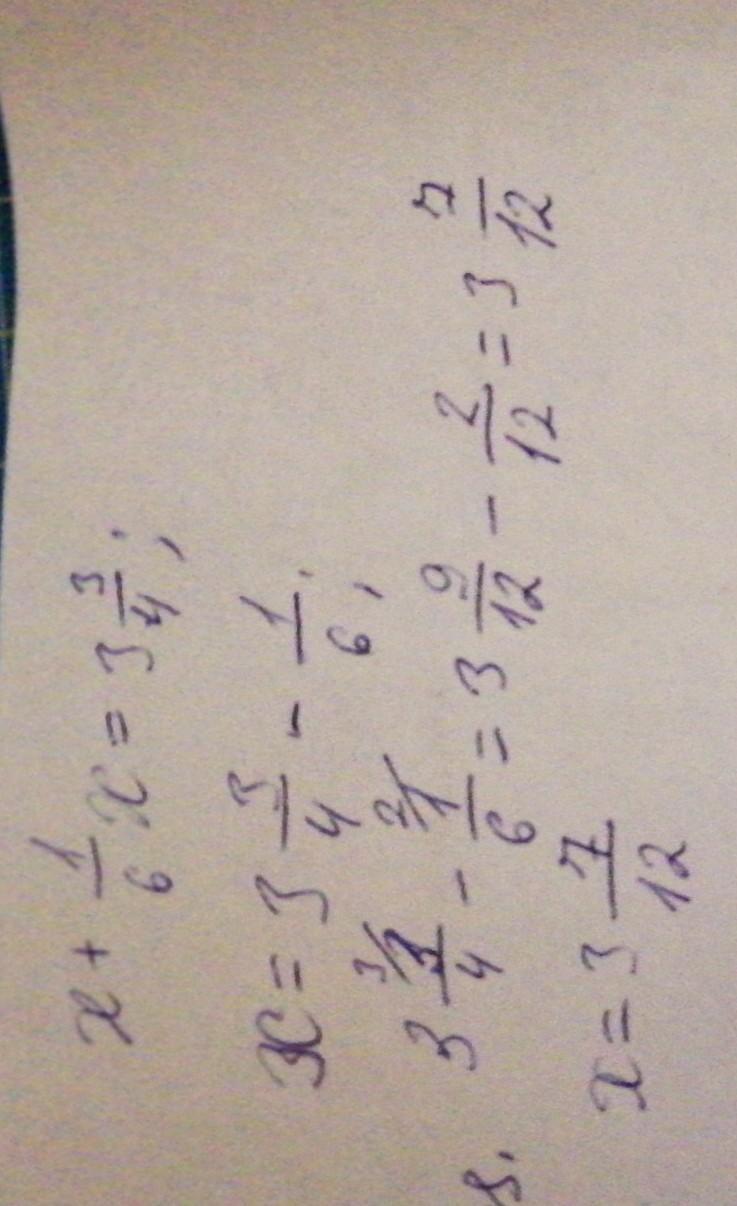 x + 1/6 x = 3 3/4;
x = 3 3/4 - 1/6;
3 3/4 - 1/6 = 3 9/12 - 2/12 = 3 7/12
x = 3 7/12